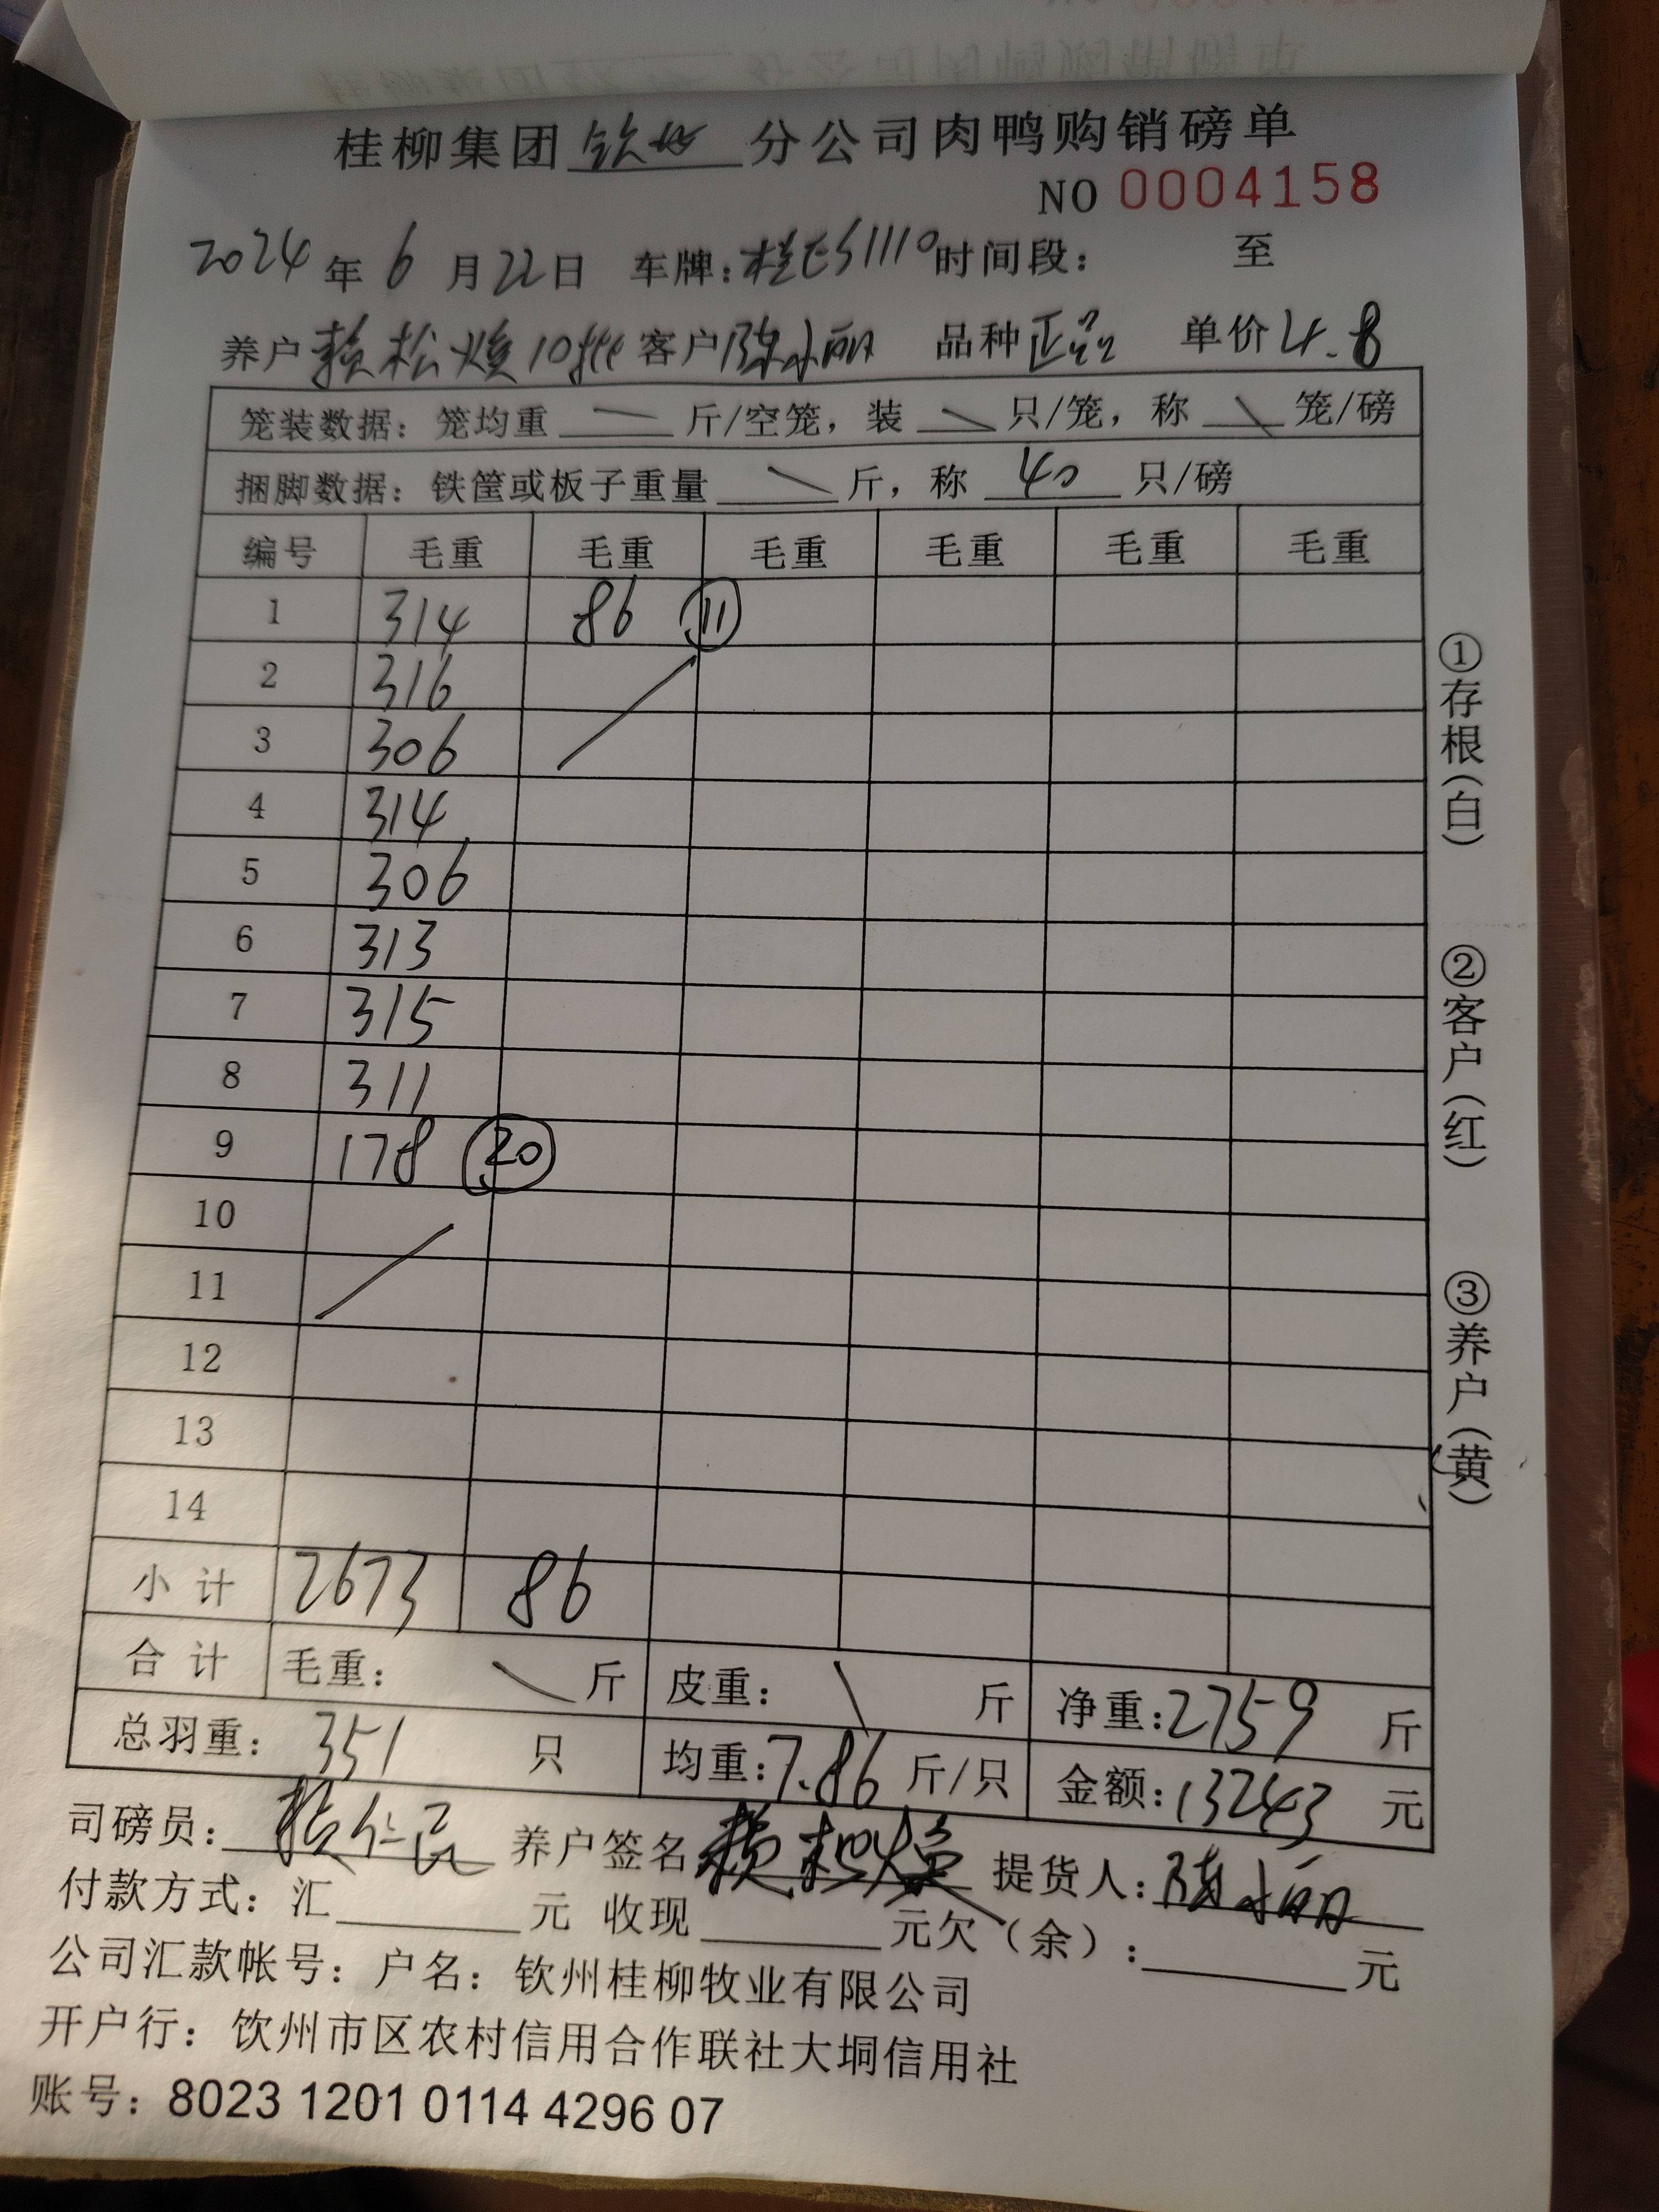 桂柳集团钦州分公司肉鸭购销磅单
NO 0004158
2024年6月22日 车牌:桂ES1110时间段: 至
养户赖松焕10批 客户陈小丽 品种正品 单价4.8
笼装数据: 笼均重 斤/空笼, 装 只/笼, 称 笼/磅
捆脚数据: 铁筐或板子重量 斤, 称 40 只/磅
编号 毛重 毛重 毛重 毛重 毛重 毛重
1 314 86 ⑪
2 316
3 306
4 314
5 306
6 313
7 315
8 311
9 178 ⑳
10
11
12
13
14
小计 2673 86
合计 毛重: 斤 皮重: 斤 净重:2759 斤
总羽重: 351 只 均重:7.86 斤/只 金额:13243 元
司磅员: 养户签名赖松焕 提货人:陈小丽
付款方式: 汇 元 收现 元欠(余): 元
公司汇款帐号: 户名: 钦州桂柳牧业有限公司
开户行: 饮州市区农村信用合作联社大垌信用社
账号: 8023 1201 0114 4296 07
①存根(白)
②客户(红)
③养户(黄)